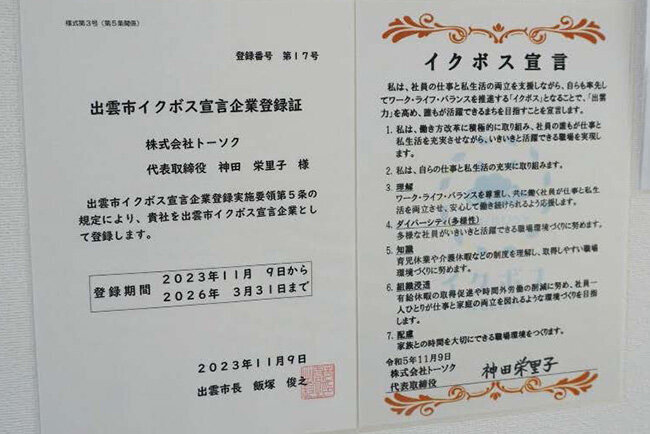 様式第3号（第5条関係）
登録番号 第17号
出雲市イクボス宣言企業登録証
株式会社トーソク
代表取締役 神田 栄里子 様
出雲市イクボス宣言企業登録実施要領第5条の
規定により、貴社を出雲市イクボス宣言企業とし
て登録します。
登録期間 2023年11月 9日から
2026年 3月31日まで
2023年11月9日
出雲市長 飯塚 俊之
イクボス宣言
私は、社員の仕事と私生活の両立を支援しながら、自らも率先し
てワーク・ライフ・バランスを推進する「イクボス」となることで、「出雲
力」を高め、誰もが活躍できるまちを目指すことを宣言します。
1. 私は、働き方改革に積極的に取り組み、社員の誰もが仕事と
私生活を充実させながら、いきいきと活躍できる職場を実現し
ます。
2. 私は、自らの仕事と私生活の充実に取り組みます。
3. 理解
ワーク・ライフ・バランスを尊重し、共に働く社員が仕事と私生
活を両立させ、安心して働き続けられるよう応援します。
4. ダイバーシティ(多様性)
多様な社員がいきいきと活躍できる職場環境づくりに努めます。
5. 知識
育児休業や介護休暇などの制度を理解し、取得しやすい職場
環境づくりに努めます。
6. 組織浸透
有給休暇の取得促進や時間外労働の削減に努め、社員一
人ひとりが仕事と家庭の両立を図れるような環境づくりを目指
します。
7. 配慮
家族との時間を大切にできる職場環境をつくります。
令和5年11月9日
株式会社トーソク
代表取締役 神田栄里子
イクボス